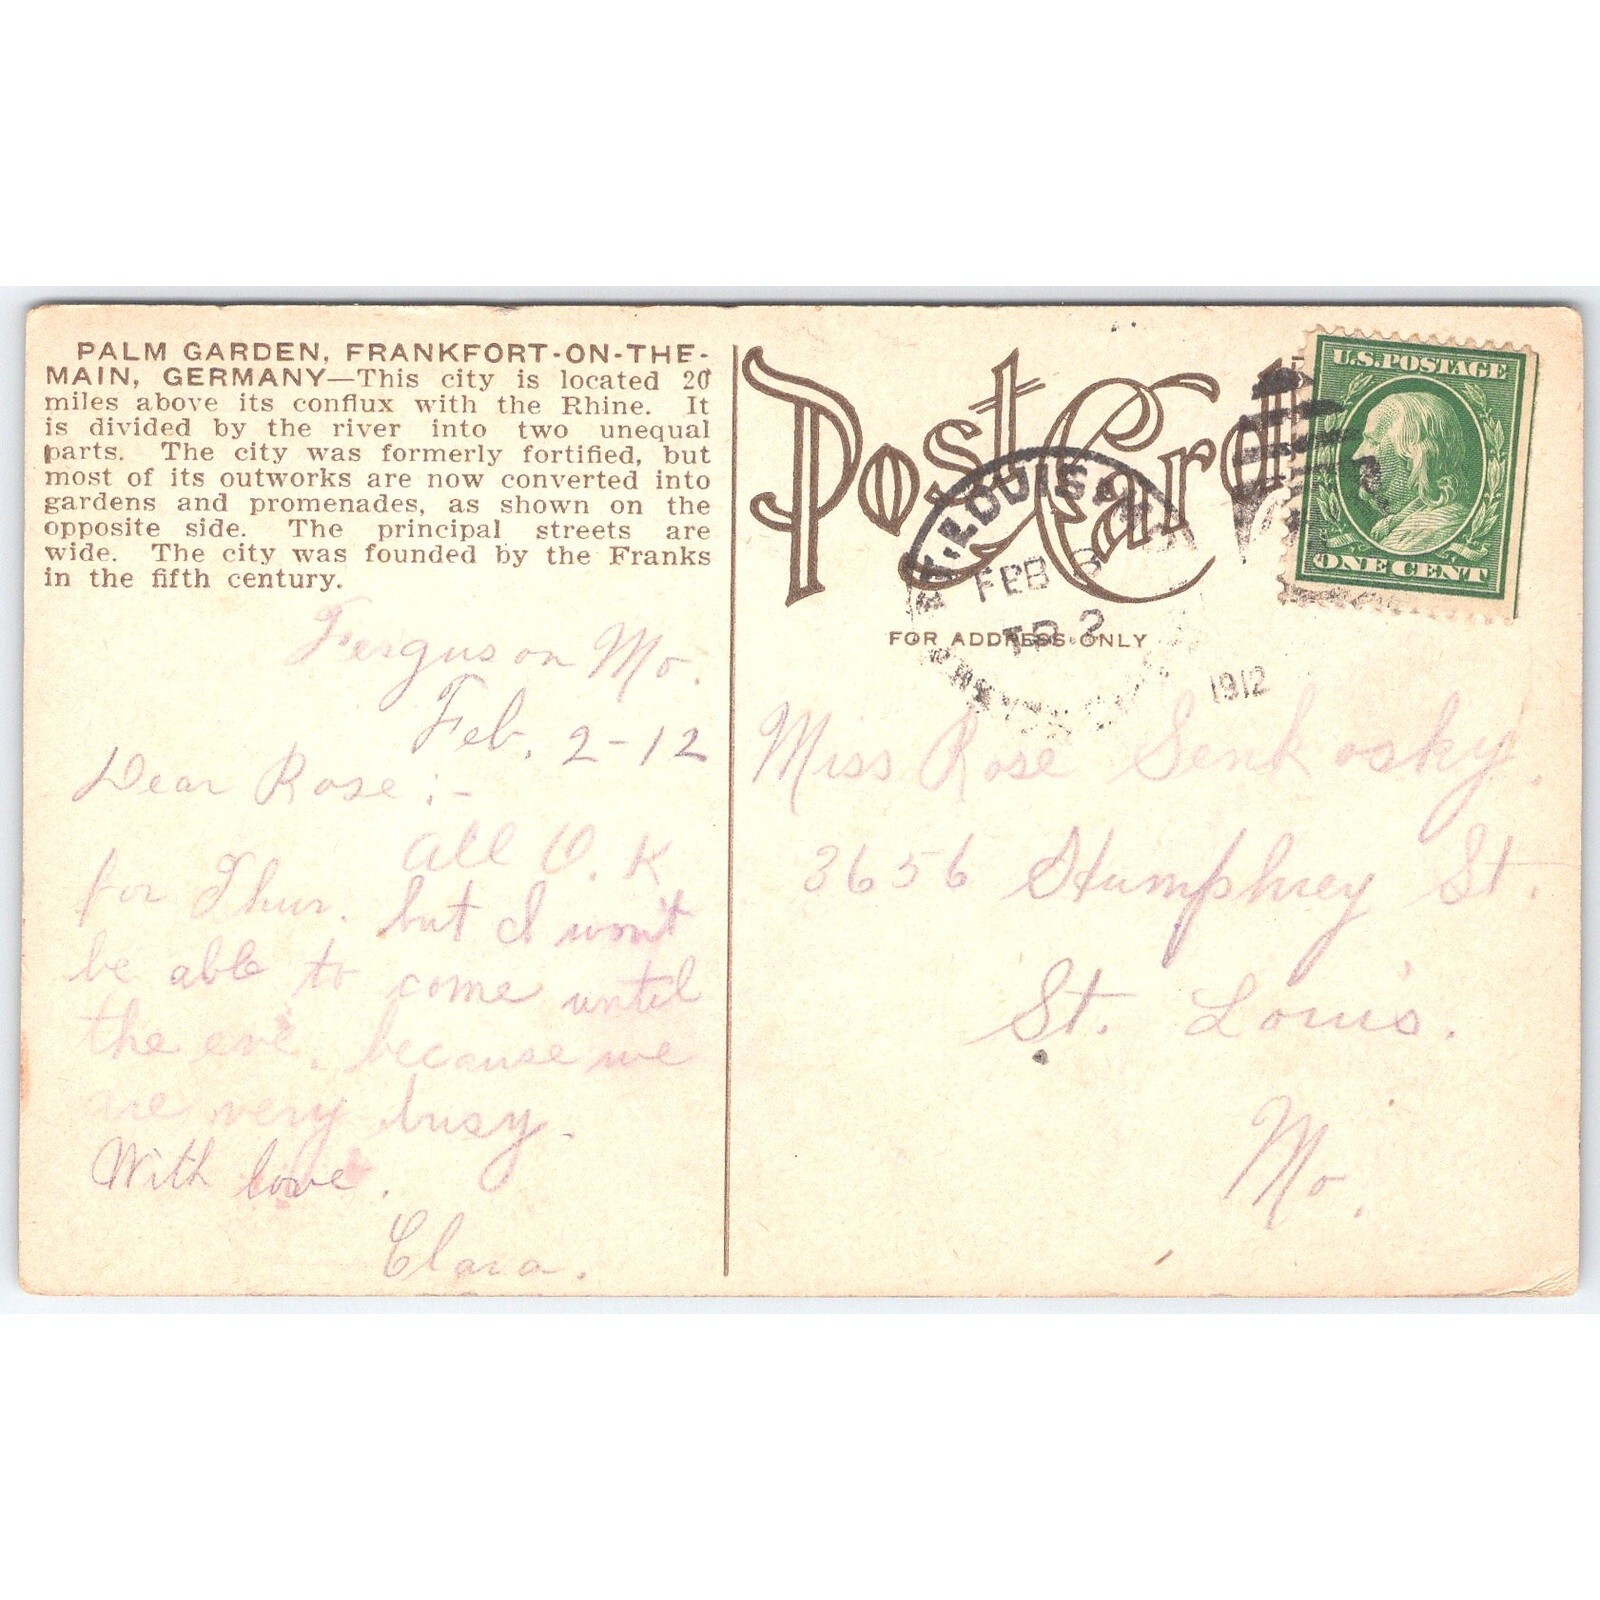 PALM GARDEN, FRANKFORT-ON-THE-
MAIN, GERMANY—This city is located 20
miles above its conflux with the Rhine. It
is divided by the river into two unequal
parts. The city was formerly fortified, but
most of its outworks are now converted into
gardens and promenades, as shown on the
opposite side. The principal streets are
wide. The city was founded by the Franks
in the fifth century.
Ferguson Mo.
Feb. 2-12
Dear Rose:-
All O.K
for Thur. but I won't
be able to come until
the eve. because we
are very busy.
With love.
Clara.
Post Card
FOR ADDRESS ONLY
ST. LOUIS
FEB 3
1912
U.S. POSTAGE
ONE CENT
Miss Rose Senkosky.
3656 Humphrey St.
St. Louis.
Mo.